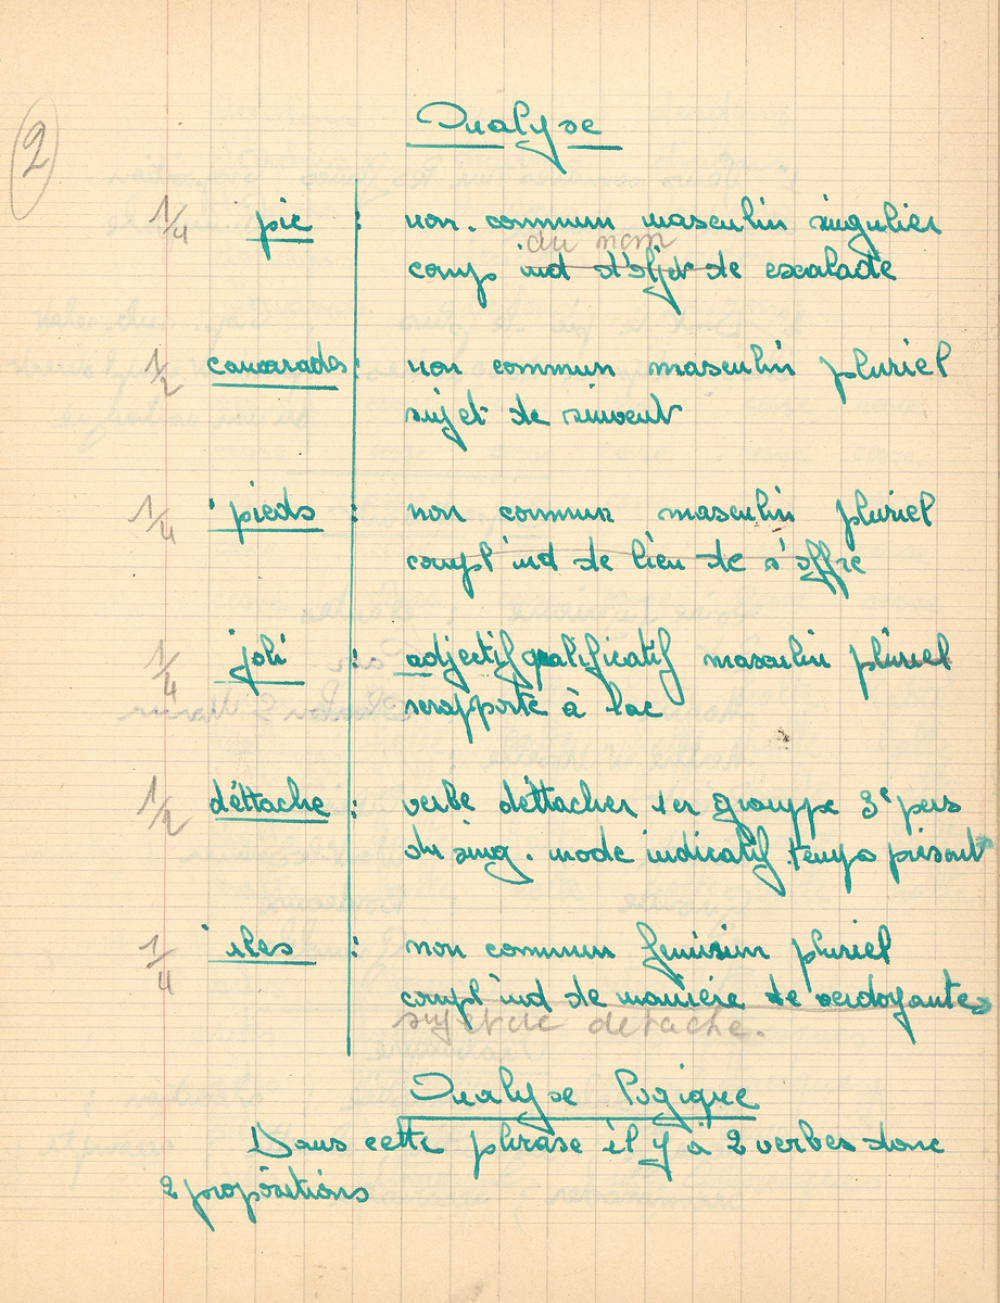 2
Analyse
1/4 pic : non. commun masculin singulier
du nom
comp ind d'objet de escalade
1/2 camarades : non commun masculin pluriel
sujet de suivent
1/4 pieds : non commun masculin pluriel
compl ind de lieu de s'offre
1/4 joli : adjectif qualificatif masculin pluriel
rerapporte à lac
1/2 déttache : verbe déttacher 1er grouppe 3e pers
du sing. mode indicatif temps présent
1/4 iles : non commun feminim pluriel
compl ind de manière de verdoyantes
sujet de détache.
Analyse logique
Dans cette phrase il y à 2 verbes donc
2 propositions